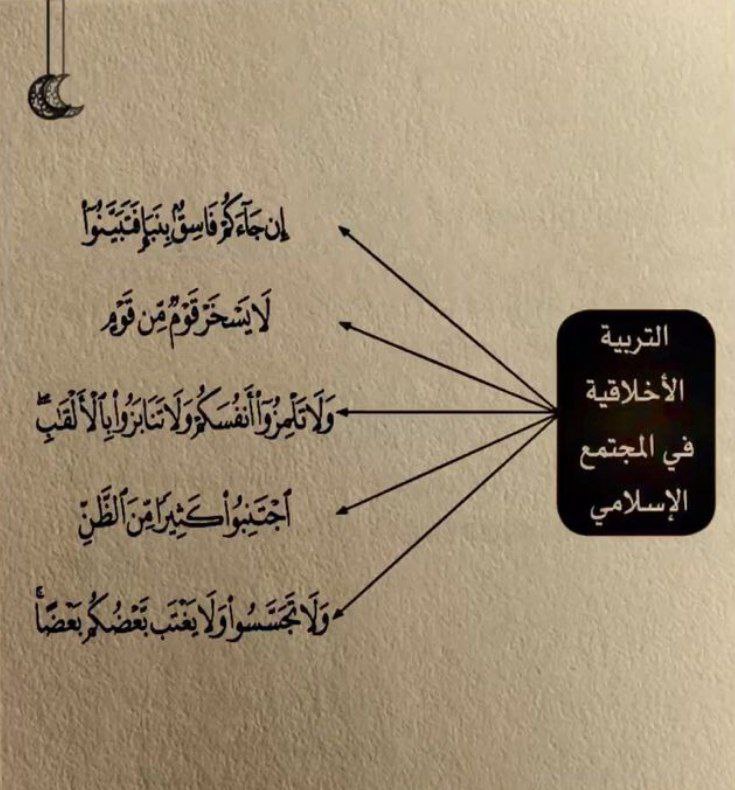 التربية
الأخلاقية
في المجتمع
الإسلامي
إِن جَآءَكُمْ فَاسِقٌۢ بِنَبَإٍ فَتَبَيَّنُوٓا۟
لَا يَسْخَرْ قَوْمٌ مِّن قَوْمٍ
وَلَا تَلْمِزُوٓا۟ أَنفُسَكُمْ وَلَا تَنَابَزُوا۟ بِٱلْأَلْقَٰبِ ۖ
ٱجْتَنِبُوا۟ كَثِيرًا مِّنَ ٱلظَّنِّ
وَلَا تَجَسَّسُوا۟ وَلَا يَغْتَب بَّعْضُكُم بَعْضًا ۚ